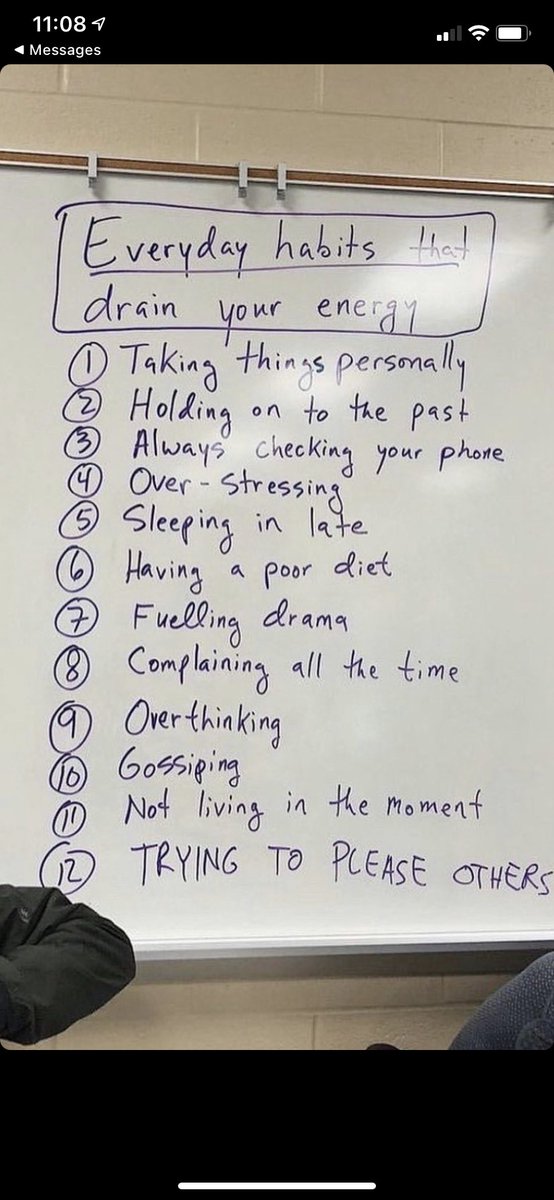 11:08
Messages
Everyday habits that
drain your energy
1 Taking things personally
2 Holding on to the past
3 Always checking your phone
4 Over-stressing
5 Sleeping in late
6 Having a poor diet
7 Fuelling drama
8 Complaining all the time
9 Overthinking
10 Gossiping
11 Not living in the moment
12 TRYING TO PLEASE OTHERS